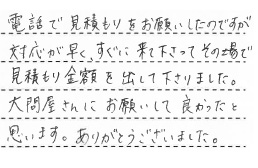 電話で見積もりをお願いしたのですが
対応が早く、すぐに来て下さってその場で
見積もり金額を出して下さりました。
大問屋さんにお願いして良かったと
思います。ありがとうございました。